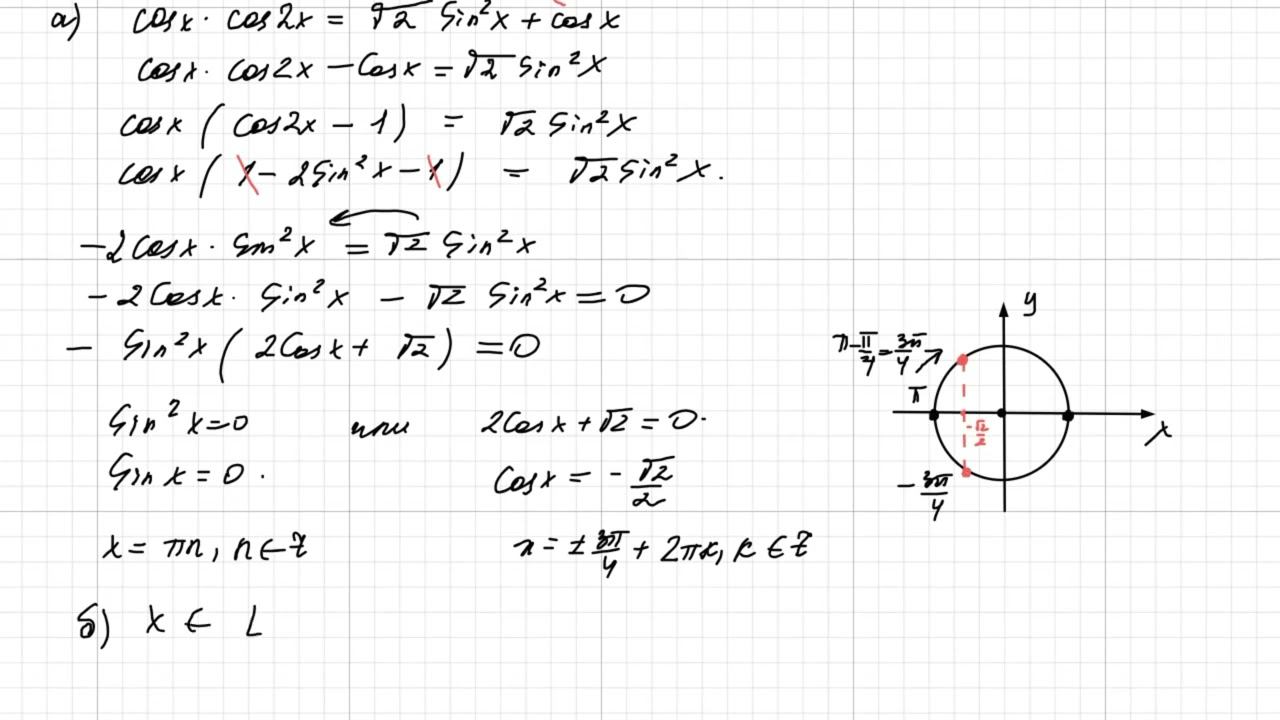 а) cosx · cos2x = √2 Sin²x + cosx
cosx · cos2x − Cosx = √2 Sin²x
cosx ( cos2x − 1 ) = √2 Sin²x
cosx ( 1 − 2Sin²x − 1 ) = √2 Sin²x.
−2Cosx · Sin²x = √2 Sin²x
−2Cosx · Sin²x − √2 Sin²x = 0
− Sin²x ( 2Cosx + √2 ) = 0
Sin²x = 0 или 2Cosx + √2 = 0.
Sin x = 0. Cosx = −√2/2
x = πn, n ∈ Z x = ± 3π/4 + 2πk, k ∈ Z
б) x ∈ [
y
π − π/4 = 3π/4
π
−√2/2
x
−3π/4